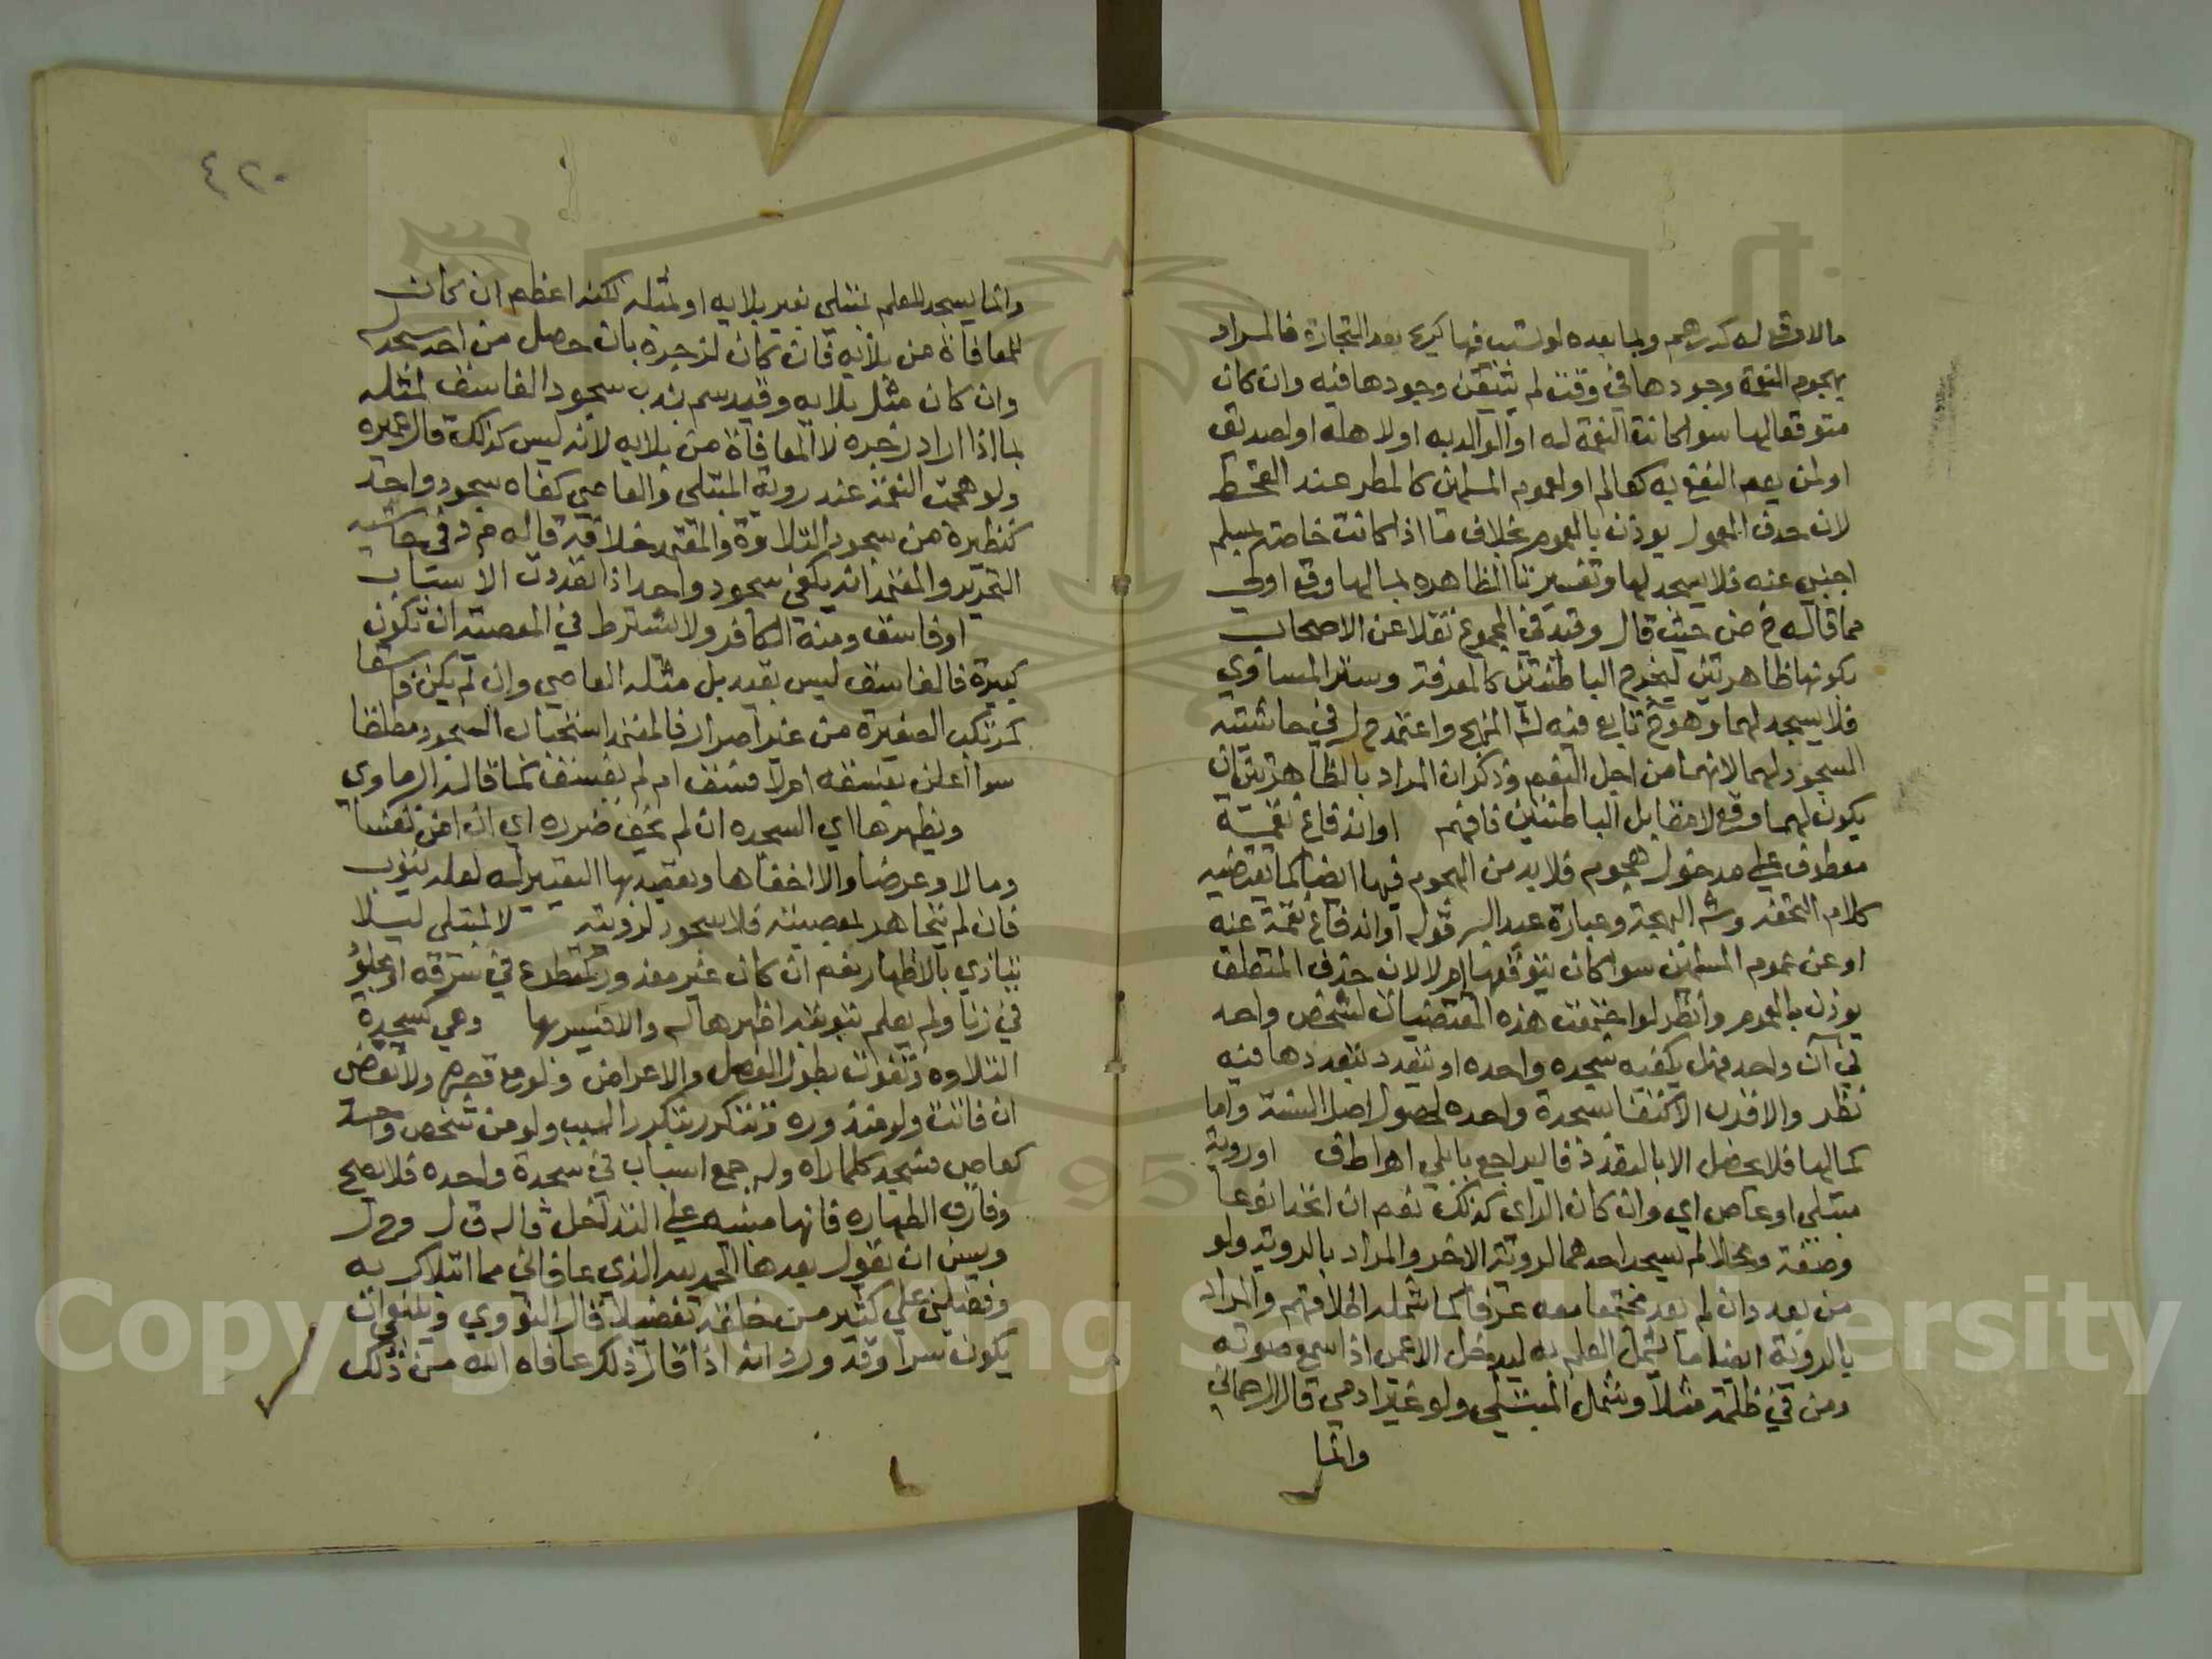 مالا وقع له كدرهم ولما بعده لو تسبب فيها كربح بعد التجارة فالمراد
بهجوم النعمة وجودها في وقت لم يتيقن وجودها فيه وان كان
متوقعا لها سوا كانت النعمة له او لوالديه او لاهله او لصديق
او لمن يعم النفع به كعالم او لعموم المسلمين كالمطر عند القحط
لان حذف المعمول يوذن بالعموم بخلاف ما اذا كانت خاصة بمسلم
اجنبي عنه فلا يسجد لها وتفسيرنا الظاهره بما لها وقع اولى
مما قاله خ ض حيث قال وقيد في المجموع نقلا عن الاصحاب
بكونها ظاهرتين ليخرج الباطنتين كالمعرفة وستر المساوي
فلا يسجد لهما وهو تابع فيه لشرح المنهج واعتمد ح ل في حاشيته
السجود لهما لانهما من اجل النعم وذكر ان المراد بالظاهرتين ان
يكون لهما وقع لا مقابل الباطنتين فافهم او اندفاع نقمة
معطوف على مدخول هجوم فلا بد من الهجوم فيها ايضا كما يقتضيه
كلام التحفة وشرح البهجة وعبارة عبد البر قوله او اندفاع نقمة عنه
او عن عموم المسلمين سوا كان يتوقعها ام لا لان حذف المتعلق
يوذن بالعموم وانظر لو اجتمعت هذه المقتضيات لشخص واحد
في آن واحد فهل يكفيه سجده واحده او تتعدد بتعددها فيه
نظر والاقرب الاكتفا بسجدة واحده لحصول اصل السنة واما
كمالها فلا يحصل الا بالتعدد فاليراجع بابلي اهـ اطف او روية
مبتلي او عاص اي وان كان الراي كذلك نعم ان اتحدا نوعا
وصفة ومحلا لم يسجد احدهما لروية الاخر والمراد بالروية ولو
من بعد وان لم يعد مجتمعا معه عرفا كما شمله اطلاقهم والمراد
بالروية ايضا ما يشمل العلم به ليدخل الاعمى اذا سمع صوته
ومن في ظلمة مثلا وشمل المبتلي ولو غير ادمي قال الرحماني
وانما
٤٢٠
وانما يسجد للعلم بمبتلي بغير بلايه او بمثله لكنه اعظم ان كان
للمعافاة من بلايه فان كان لزجره بان حصل من احد سجد له
وان كان مثل بلايه وقيد سم ندب سجود الفاسق لمثله
بما اذا اراد زجره لا المعافاة من بلايه لانه ليس كذلك قال عميره
ولو هجمت النعمة عند روية المبتلى والعاصي كفاه سجود واحد
كنظيره من سجود التلاوة والمعتمد خلافه قاله م د في حاشية
التحرير والمعتمد انه يكفي سجود واحد اذا تعددت الاسباب
او فاسق ومنه الكافر ولا يشترط في المعصية ان تكون
كبيرة فالفاسق ليس بقيد بل مثله العاصي وان لم يكن فاسقا
كمرتكب الصغيرة من غير اصرار فالمعتمد استحباب السجود مطلقا
سوا اعلن بفسقه ام لا فسق ام لم يفسق كما قاله البرماوي
ويظهرها اي السجده ان لم يخف ضرره اي ان امن نفسا
ومالا وعرضا والا اخفاها وبقصد بها التعيير له لعله يتوب
فان لم يتجاهر بمعصيته فلا سجود لرويته لا لمبتلى ليلا
يتاذي بالاظهار نعم ان كان غير معذور كمقطوع في سرقه او مجلود
في زنا ولم يعلم توبته اظهرها له والا فيسرها وهي كسجدة
التلاوه وتفوت بطول الفصل والاعراض ولو مع قصره ولا تقضى
ان فاتت ولو منذوره وتتكرر بتكرر السبب ولو من شخص واحد
كعاص فيسجد كلما راه وله جمع اسباب في سجدة واحده فلا يصح
وفارق الطهاره فانها مبنيه على التداخل قاله ق ل و ح ل
ويسن ان يقول بعدها الحمد لله الذي عافاني مما ابتلاك به
وفضلني على كثير من خلقه تفضيلا قال النووي وينبغي ان
يكون سرا وقد ورد انه اذا قال ذلك عافاه الله من ذلك
Copyright © King Saud University